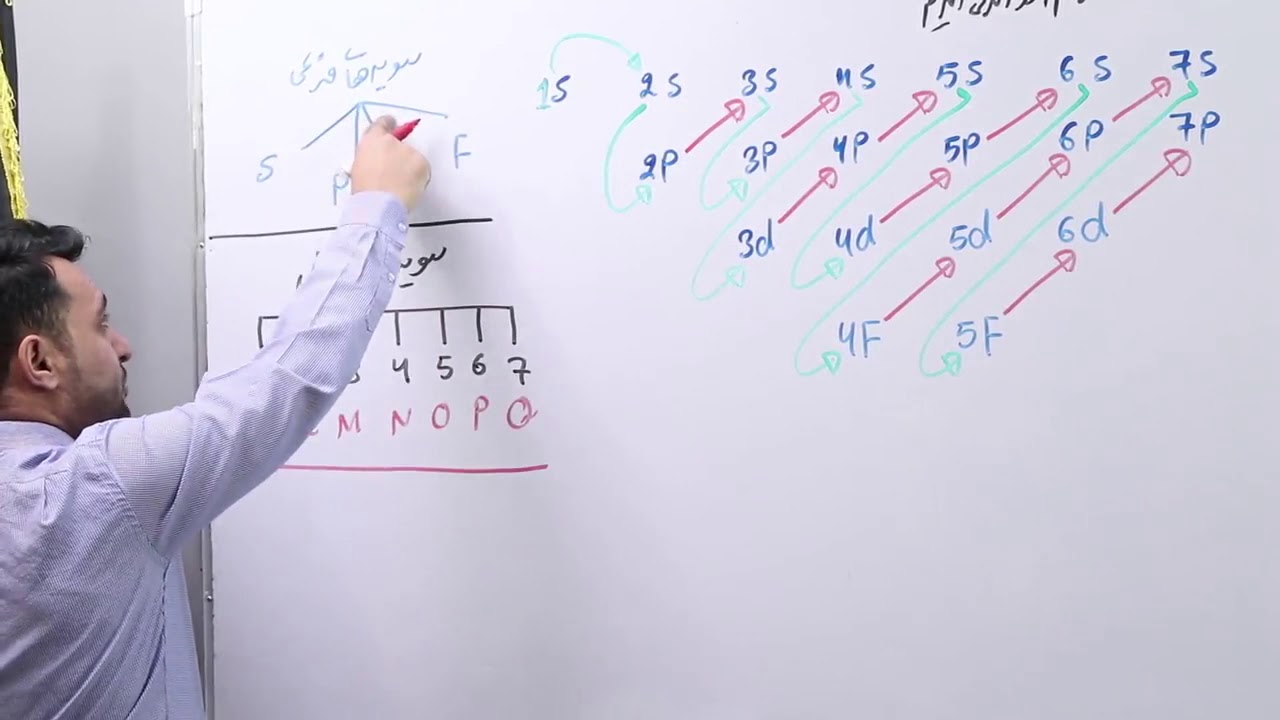 سویه های فرعی
S P F
سویه
4 5 6 7
M N O P Q
1S 2S 3S 4S 5S 6S 7S
2P 3P 4P 5P 6P 7P
3d 4d 5d 6d
4F 5F